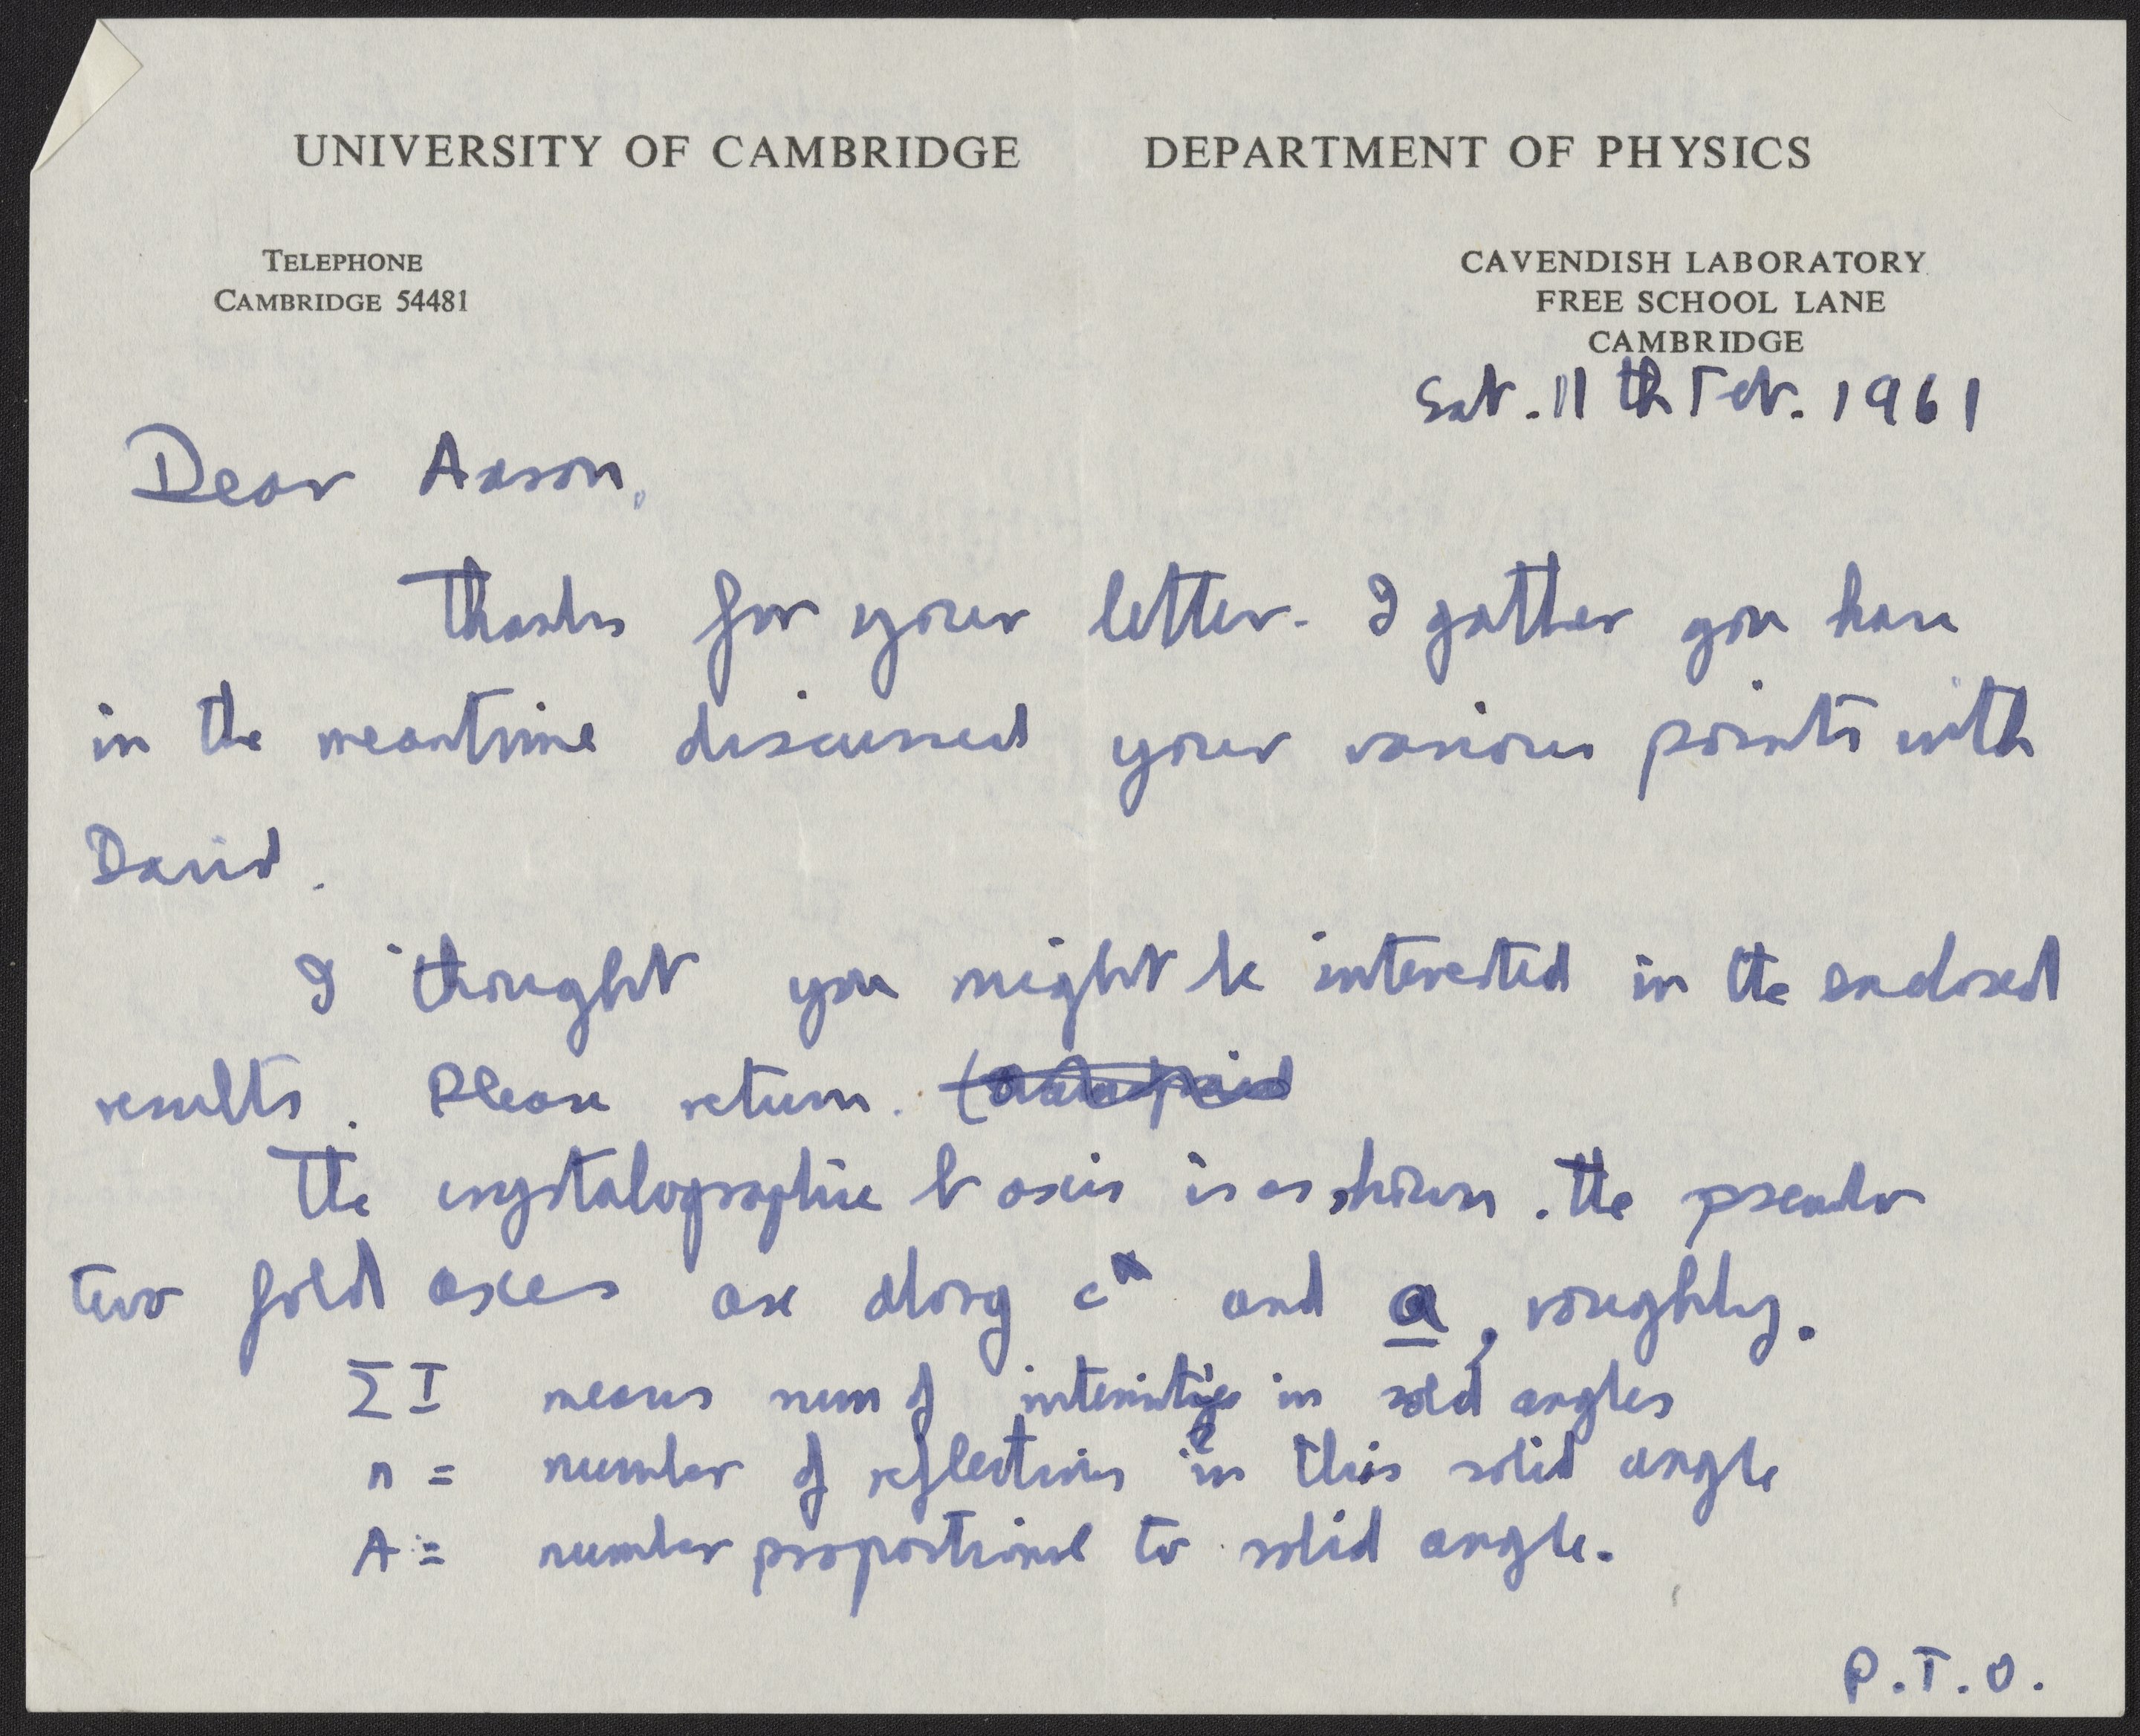 UNIVERSITY OF CAMBRIDGE DEPARTMENT OF PHYSICS
TELEPHONE
CAMBRIDGE 54481
CAVENDISH LABORATORY
FREE SCHOOL LANE
CAMBRIDGE
Sat. 11th Feb. 1961
Dear Aaron,
Thanks for your letter. I gather you have
in the meantime discussed your various points with
David.
I thought you might be interested in the enclosed
results. Please return.
The crystalographic b axis is as shown. The pseudo
two fold axes are along c* and a, roughly.
ΣI means sum of intensities in solid angles
n = number of reflections in this solid angle
A = number proportional to solid angle.
P.T.O.